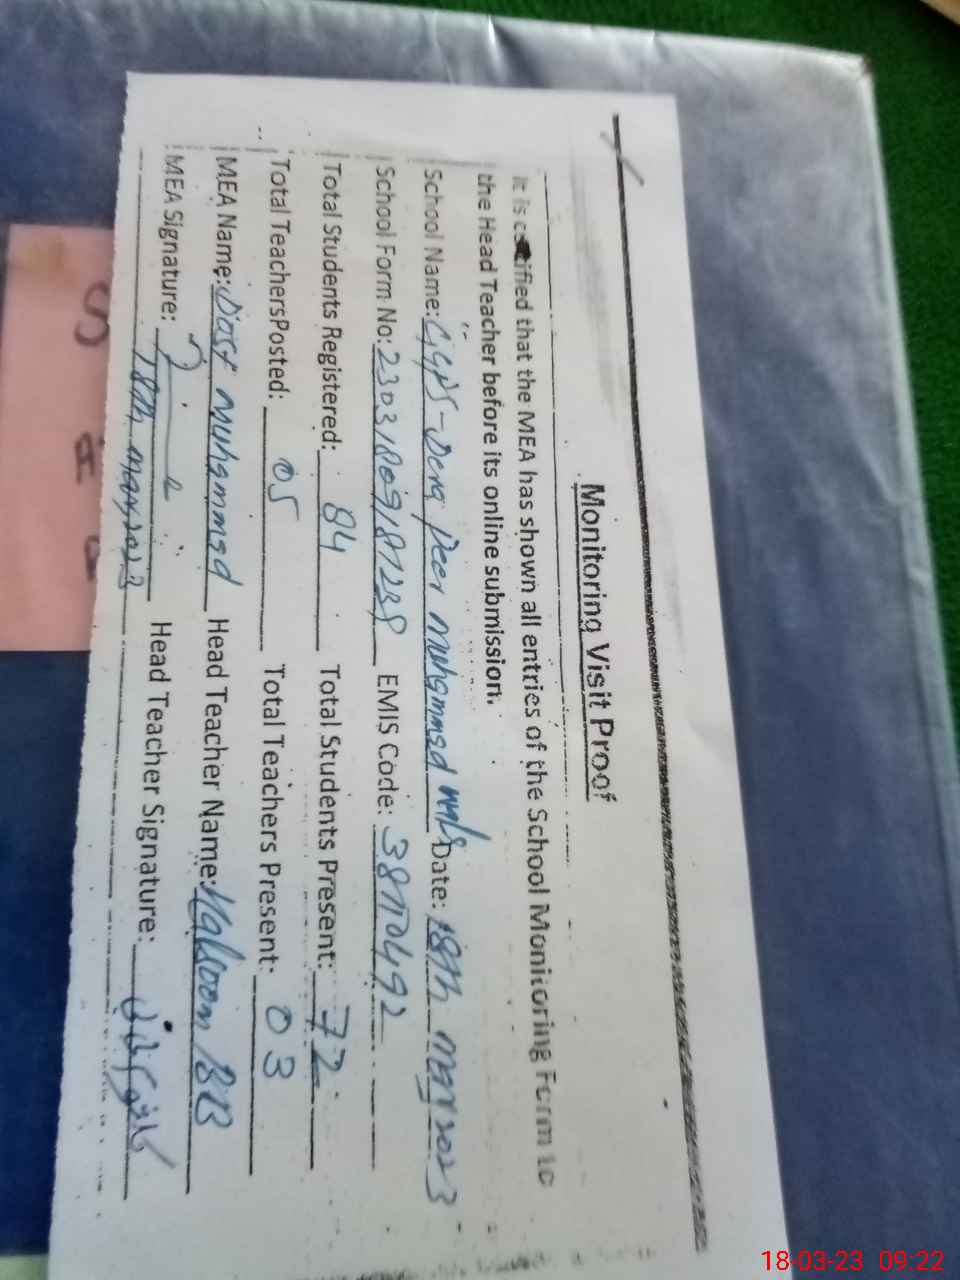 Monitoring Visit Proof
It is certified that the MEA has shown all entries of the School Monitoring Form to
the Head Teacher before its online submission.
School Name: GGPS-Dera Peer Muhammad Date: 18th May 2023
School Form No: EMIS Code: 38170492
Total Students Registered: 84 Total Students Present: 72
Total TeachersPosted: 05 Total Teachers Present: 03
MEA Name: Dost Muhammad Head Teacher Name: Kalsoom BB
MEA Signature: Head Teacher Signature:
18th 2023
S
18-03-23 09:22